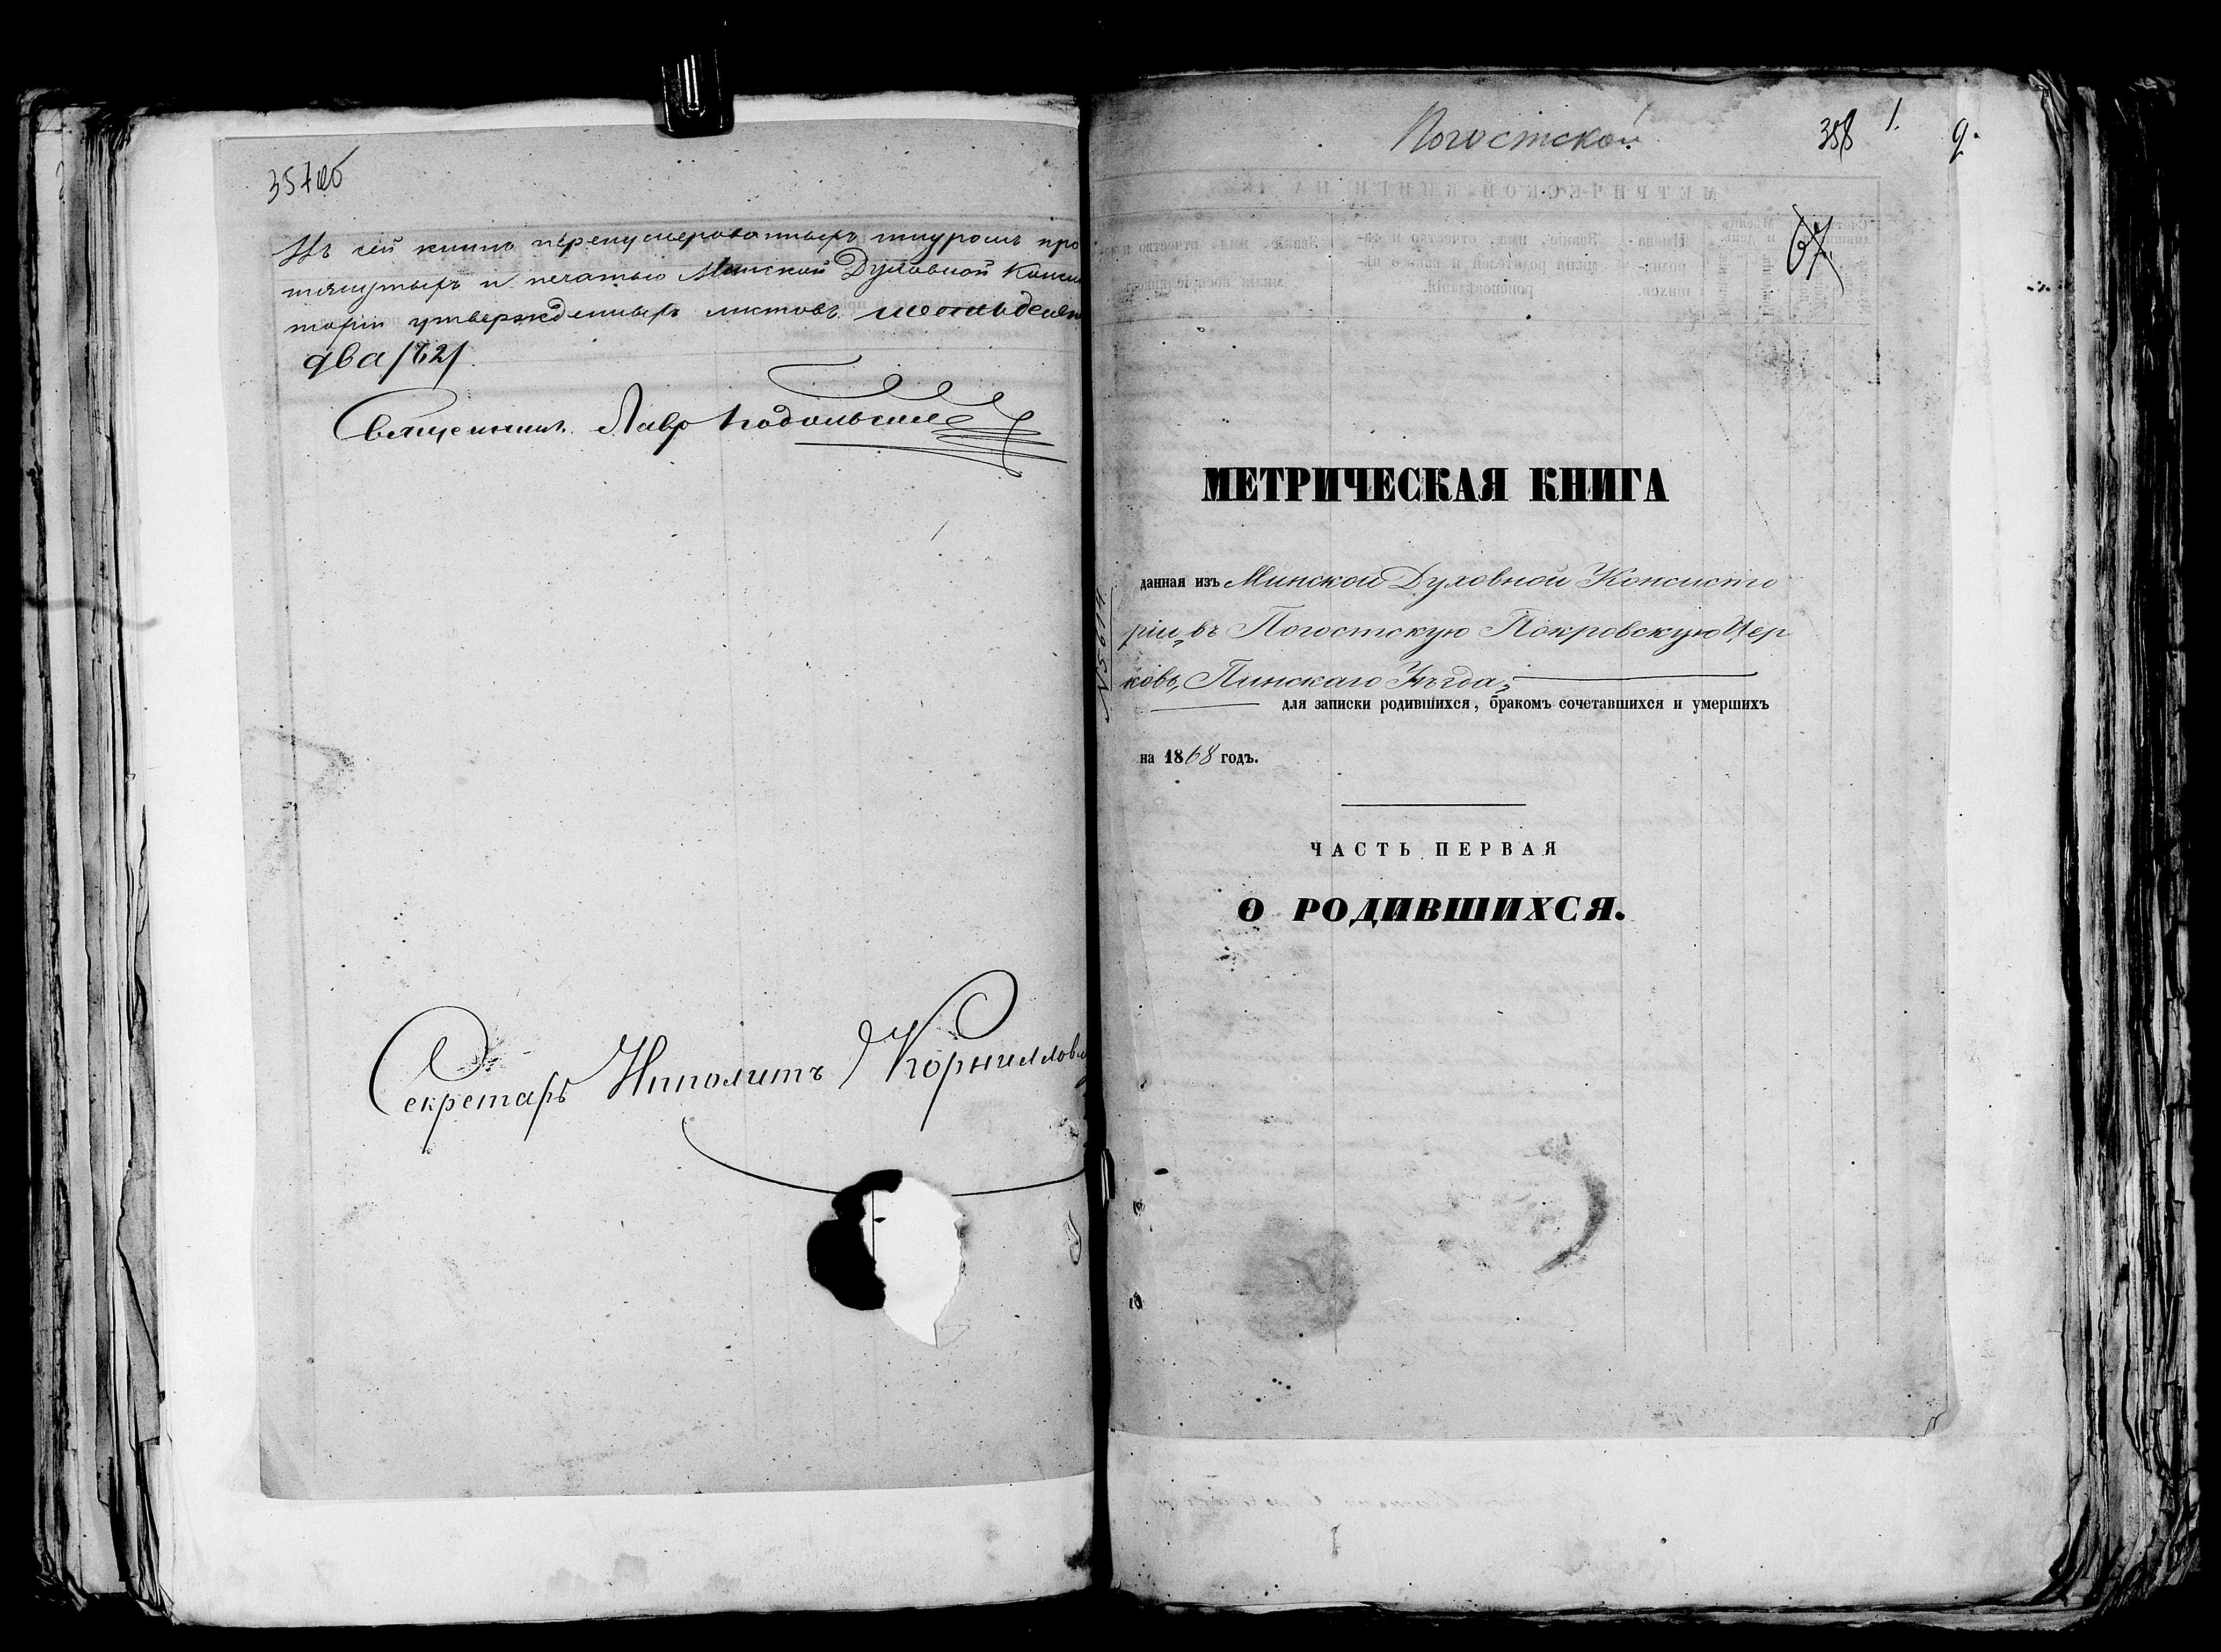 357об
Въ сей книгѣ перенумерованныхъ шнуромъ про
тянутыхъ и печатью Минской Духовной Конси
торіи утвержденныхъ листовъ шестьдесят
два /62/
Священникъ Лавр Подольский
Секретарь Ипполитъ Корнилов
Погостской
358 1.
9.
67
МЕТРИЧЕСКАЯ КНИГА
данная изъ Минской Духовной Консисто
ріи, въ Погостскую Покровскую Цер
ковь, Пинскаго Уѣзда,
для записки родившихся, бракомъ сочетавшихся и умершихъ
на 1868 годъ.
ЧАСТЬ ПЕРВАЯ
О РОДИВШИХСЯ.